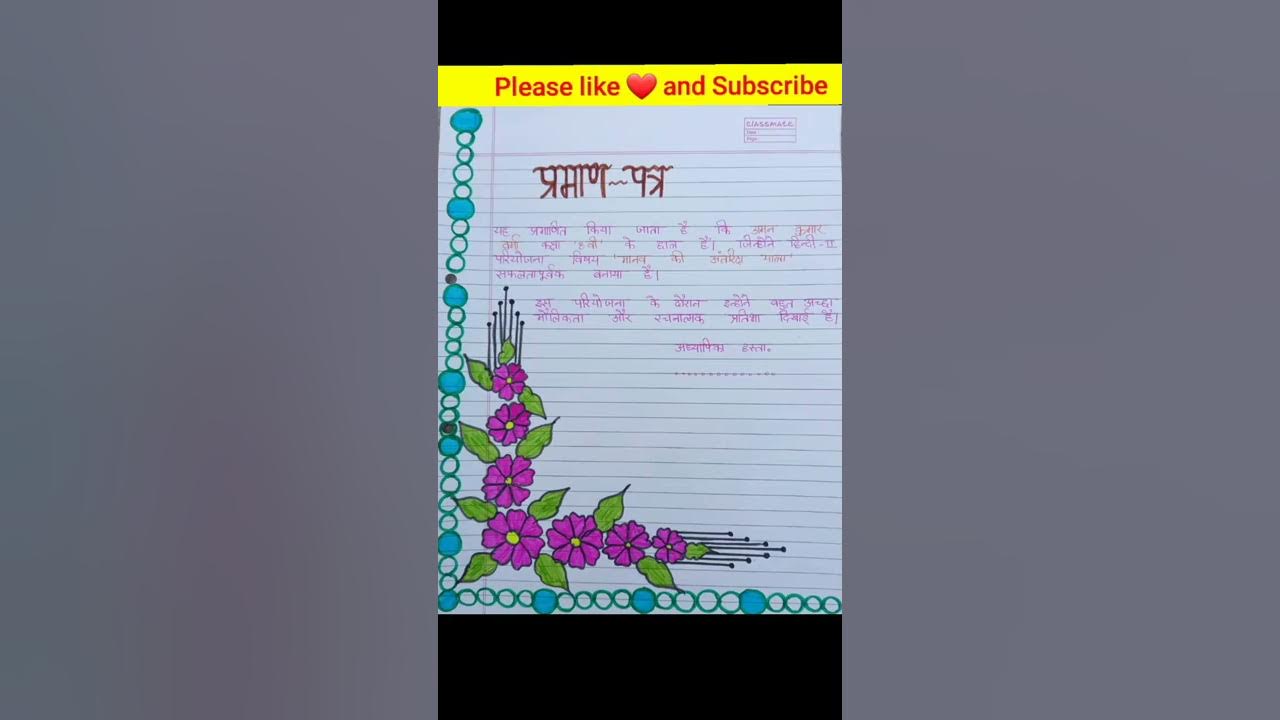 Please like ❤️ and Subscribe
CLASSMATE
Date
Page
प्रमाण~~पत्र
यह प्रमाणित किया जाता है कि अमन कुमार
वर्मा कक्षा '8वी' के छात्र हैं। जिन्होंने हिन्दी-II
परियोजना विषय 'मानव की अंतरिक्ष यात्रा'
सफलतापूर्वक बनाया है।
इस परियोजना के दौरान इन्होंने बहुत अच्छा
मौलिकता और रचनात्मक प्रतिभा दिखाई है।
अध्यापिका हस्ता०